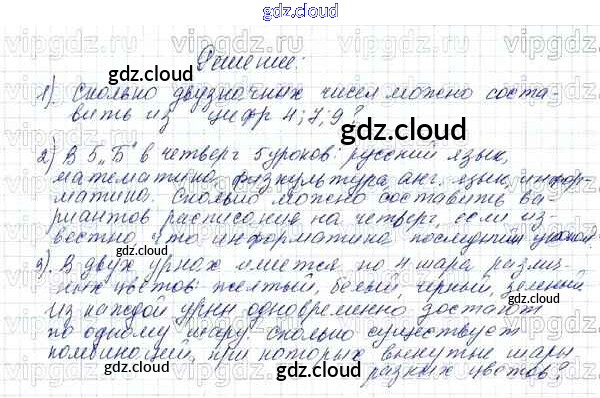 gdz.cloud
Решение:
gdz.cloud
1) Сколько двузначных чисел можно соста-
вить из цифр 4; 7; 9?
gdz.cloud
2) В 5 „Б" в четверг 5 уроков: русский язык,
математика, физкультура, анг. язык, инфор-
матика. Сколько можно составить ва-
риантов расписания на четверг, если из-
вестно, что информатика последний
gdz.cloud
3). В двух урнах имеется по 4 шара различ-
ных цветов: желтый, белый, черный, зеленый
Из каждой урны одновременно достают
по одному шару. Сколько существует
gdz.cloud
при которых вынутые шары
разных цветов?
gdz.cloud